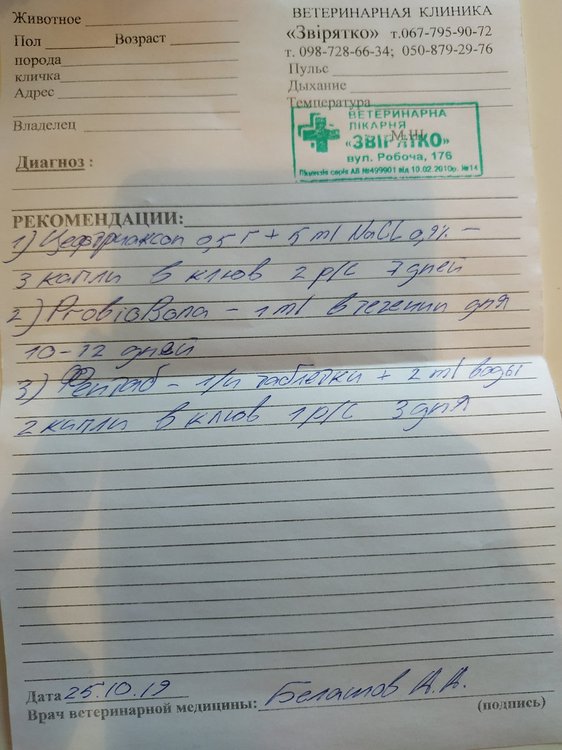 ВЕТЕРИНАРНАЯ КЛИНИКА
«Звірятко» т.067-795-90-72
т. 098-728-66-34; 050-879-29-76
Животное
Пол Возраст
порода
кличка
Адрес
Владелец
Пульс
Дыхание
Температура
ВЕТЕРИНАРНА
ЛІКАРНЯ
«ЗВІРЯТКО»
вул. Робоча, 176
Ліцензія серія АВ №499901 від 10.02.2010р. №14
Диагноз :
РЕКОМЕНДАЦИИ:
1) Цефтриаксон 0,5 г + 5 ml NaCl 0,9% –
3 капли в клюв 2 р/с 7 дней
2) – 1 ml в течении дня
10-12 дней
3) – таблетки + 2 ml воды
2 капли в клюв 1 р/с 3 дня
Дата 25.10.19
Врач ветеринарной медицины: А.А.
(подпись)